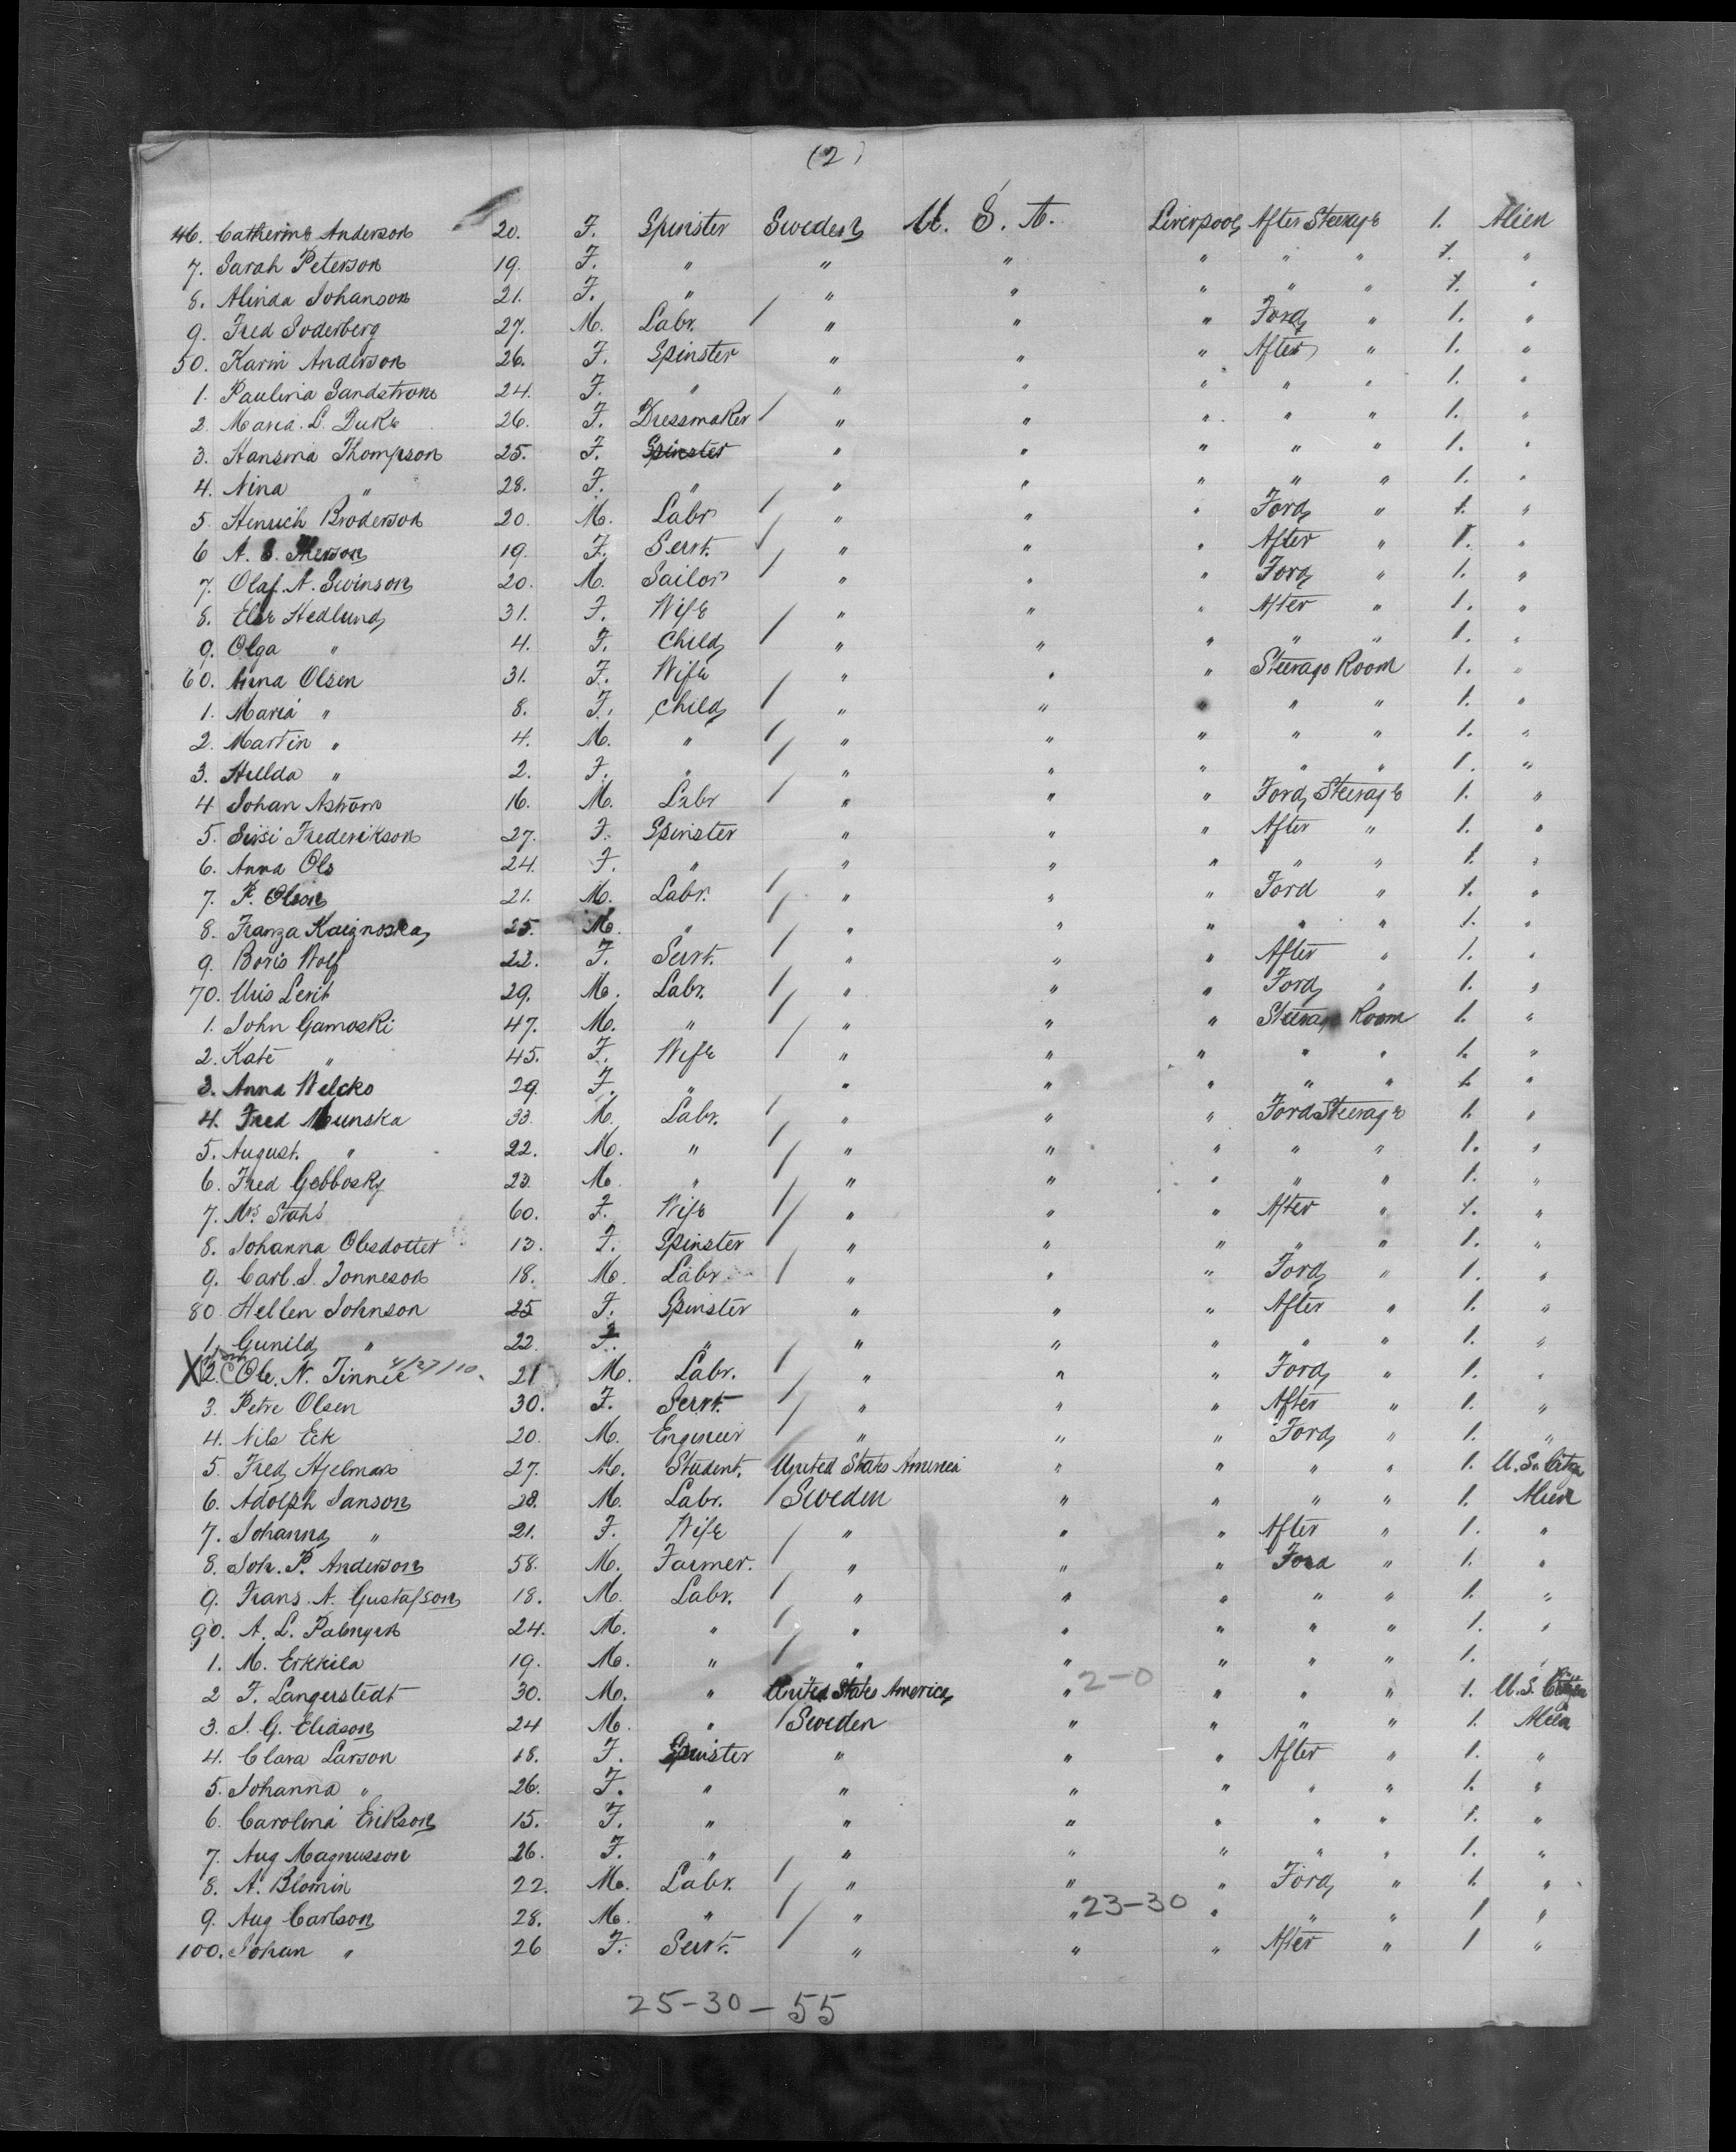 (2)
46. Catherine Anderson 20. F. Spinster Sweden U. S. A. Liverpool After Steerage 1. Alien
7. Sarah Peterson 19. F. " " " " " " 1. "
8. Alinda Johanson 21. F. " " " " " " 1. "
9. Fred Soderberg 27. M. Labr. / " " " Ford " 1. "
50. Karin Anderson 26. F. Spinster " " " After " 1. "
1. Paulina Sandstrom 24. F. " " " " " " 1. "
2. Maria. L. Duke 26. F. Dressmaker / " " " " " 1. "
3. Hansina Thompson 25. F. Spinster " " " " " 1. "
4. Nina " 28. F. " " " " " " 1. "
5. Henrich Broderson 20. M. Labr / " " " Ford " 1. "
6 A. S. 19. F. Servt. / " " " After " 1. "
7. Olaf. A. Swinson 20. M. Sailor / " " " Ford " 1. "
8. Else Hedlund 31. F. Wife / " " " After " 1. "
9. Olga " 4. F. Child / " " " " " 1. "
60. Anna Olsen 31. F. Wife / " " " Steerage Room 1. "
1. Maria " 8. F. Child / " " " " " 1. "
2. Martin " 4. M. " / " " " " " 1. "
3. Hillda " 2. F. " / " " " " " 1. "
4 Johan Astrom 16. M. Labr / " " " Ford Steerage 1. "
5. Sissi Frederikson 27. F. Spinster " " " After " 1. "
6. Anna Ols 24. F. " " " " " " 1. "
7. P. Olson 21. M. Labr. / " " " Ford " 1. "
8. Franza Kaignoska 25. M. " / " " " " " 1. "
9. Boris Wolf 22. F. Servt. / " " " After " 1. "
70. Uris Levit 29. M. Labr. / " " " Ford " 1. "
1. John Gamoski 47. M. " / " " " Steerage Room 1. "
2. Kate " 45. F. Wife / " " " " " 1. "
3. Anna Welcko 29. F. " " " " " " 1. "
4. Fred Munska 33. M. Labr. / " " " Ford Steerage 1. "
5. August. " 22. M. " / " " " " " 1. "
6. Fred Gebbosky 23. M. " / " " " " " 1. "
7. Mrs Stahl 60. F. Wife / " " " After " 1. "
8. Johanna Olesdotter 13. F. Spinster / " " " " " 1. "
9. Carl. J. Jonneson 18. M. Labr / " " " Ford " 1. "
80 Hellen Johnson 25 F. Spinster " " " After " 1. "
1. Gunild " 22. F. " / " " " " " 1. "
X 2. Ole. N. Finnie 4/27/10. 21 M. Labr. / " " " Ford " 1. "
3. Petre Olsen 30. F. Servt. / " " " After " 1. "
4. Nils Eck 20. M. Engineer " " " Ford " 1. "
5. Fred Hjelman 27. M. Student. United States America " " " " 1. U.S. Citzn
6. Adolph Janson 28. M. Labr. / Sweden " " " " 1. Alien
7. Johanna " 21. F. Wife / " " " After " 1. "
8. Joh. P. Anderson 58. M. Farmer. / " " " Ford " 1. "
9. Frans. A. Gustafson 18. M. Labr. / " " " " " 1. "
90. A. L. Palmgren 24. M. " / " " " " " 1. "
1. M. Erkkila 19. M. " / " " " " " 1. "
2 F. Langerstedt 30. M. " United States America " 2-0 " " " 1. U.S. Citizen
3. J. G. Eliason 24 M. " / Sweden " " " " 1. Alien
4. Clara Larson 18. F. Spinster " " " After " 1. "
5. Johanna " 26. F. " " " " " " 1. "
6. Carolina Erikson 15. F. " " " " " " 1. "
7. Aug Magnusson 26. F. " " " " " " 1. "
8. A. Blomin 22. M. Labr. / " " " Ford " 1. "
9. Aug Carlson 28. M. " / " " 23-30 " " " 1 "
100. Johan " 26 F. Servt. / " " " After " 1 "
25-30-55